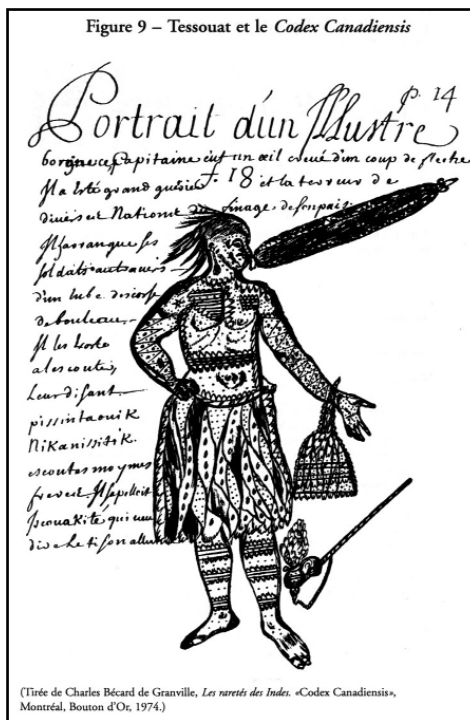 Figure 9 – Tessouat et le Codex Canadiensis
p. 14
Portrait d'un Jllustre
borgne ce Capitaine eut un œil creué d'un coup de fleche
Jl a esté grand guérier + 18 et la terreur de
diuerses Nations du Uinage de son pais
Jl harangue ses
soldats au trauers
d'un tube d'écorse
de bouleau
Jl les exorte
a les couter
Leur disant
pissintaouik
Nikanissitik
escoutes moy mes
freres Jl s'apelloit
Jscouakité qui ueut
dire Le tison allumé
(Tirée de Charles Bécard de Granville, Les raretés des Indes. «Codex Canadiensis»,
Montréal, Bouton d'Or, 1974.)